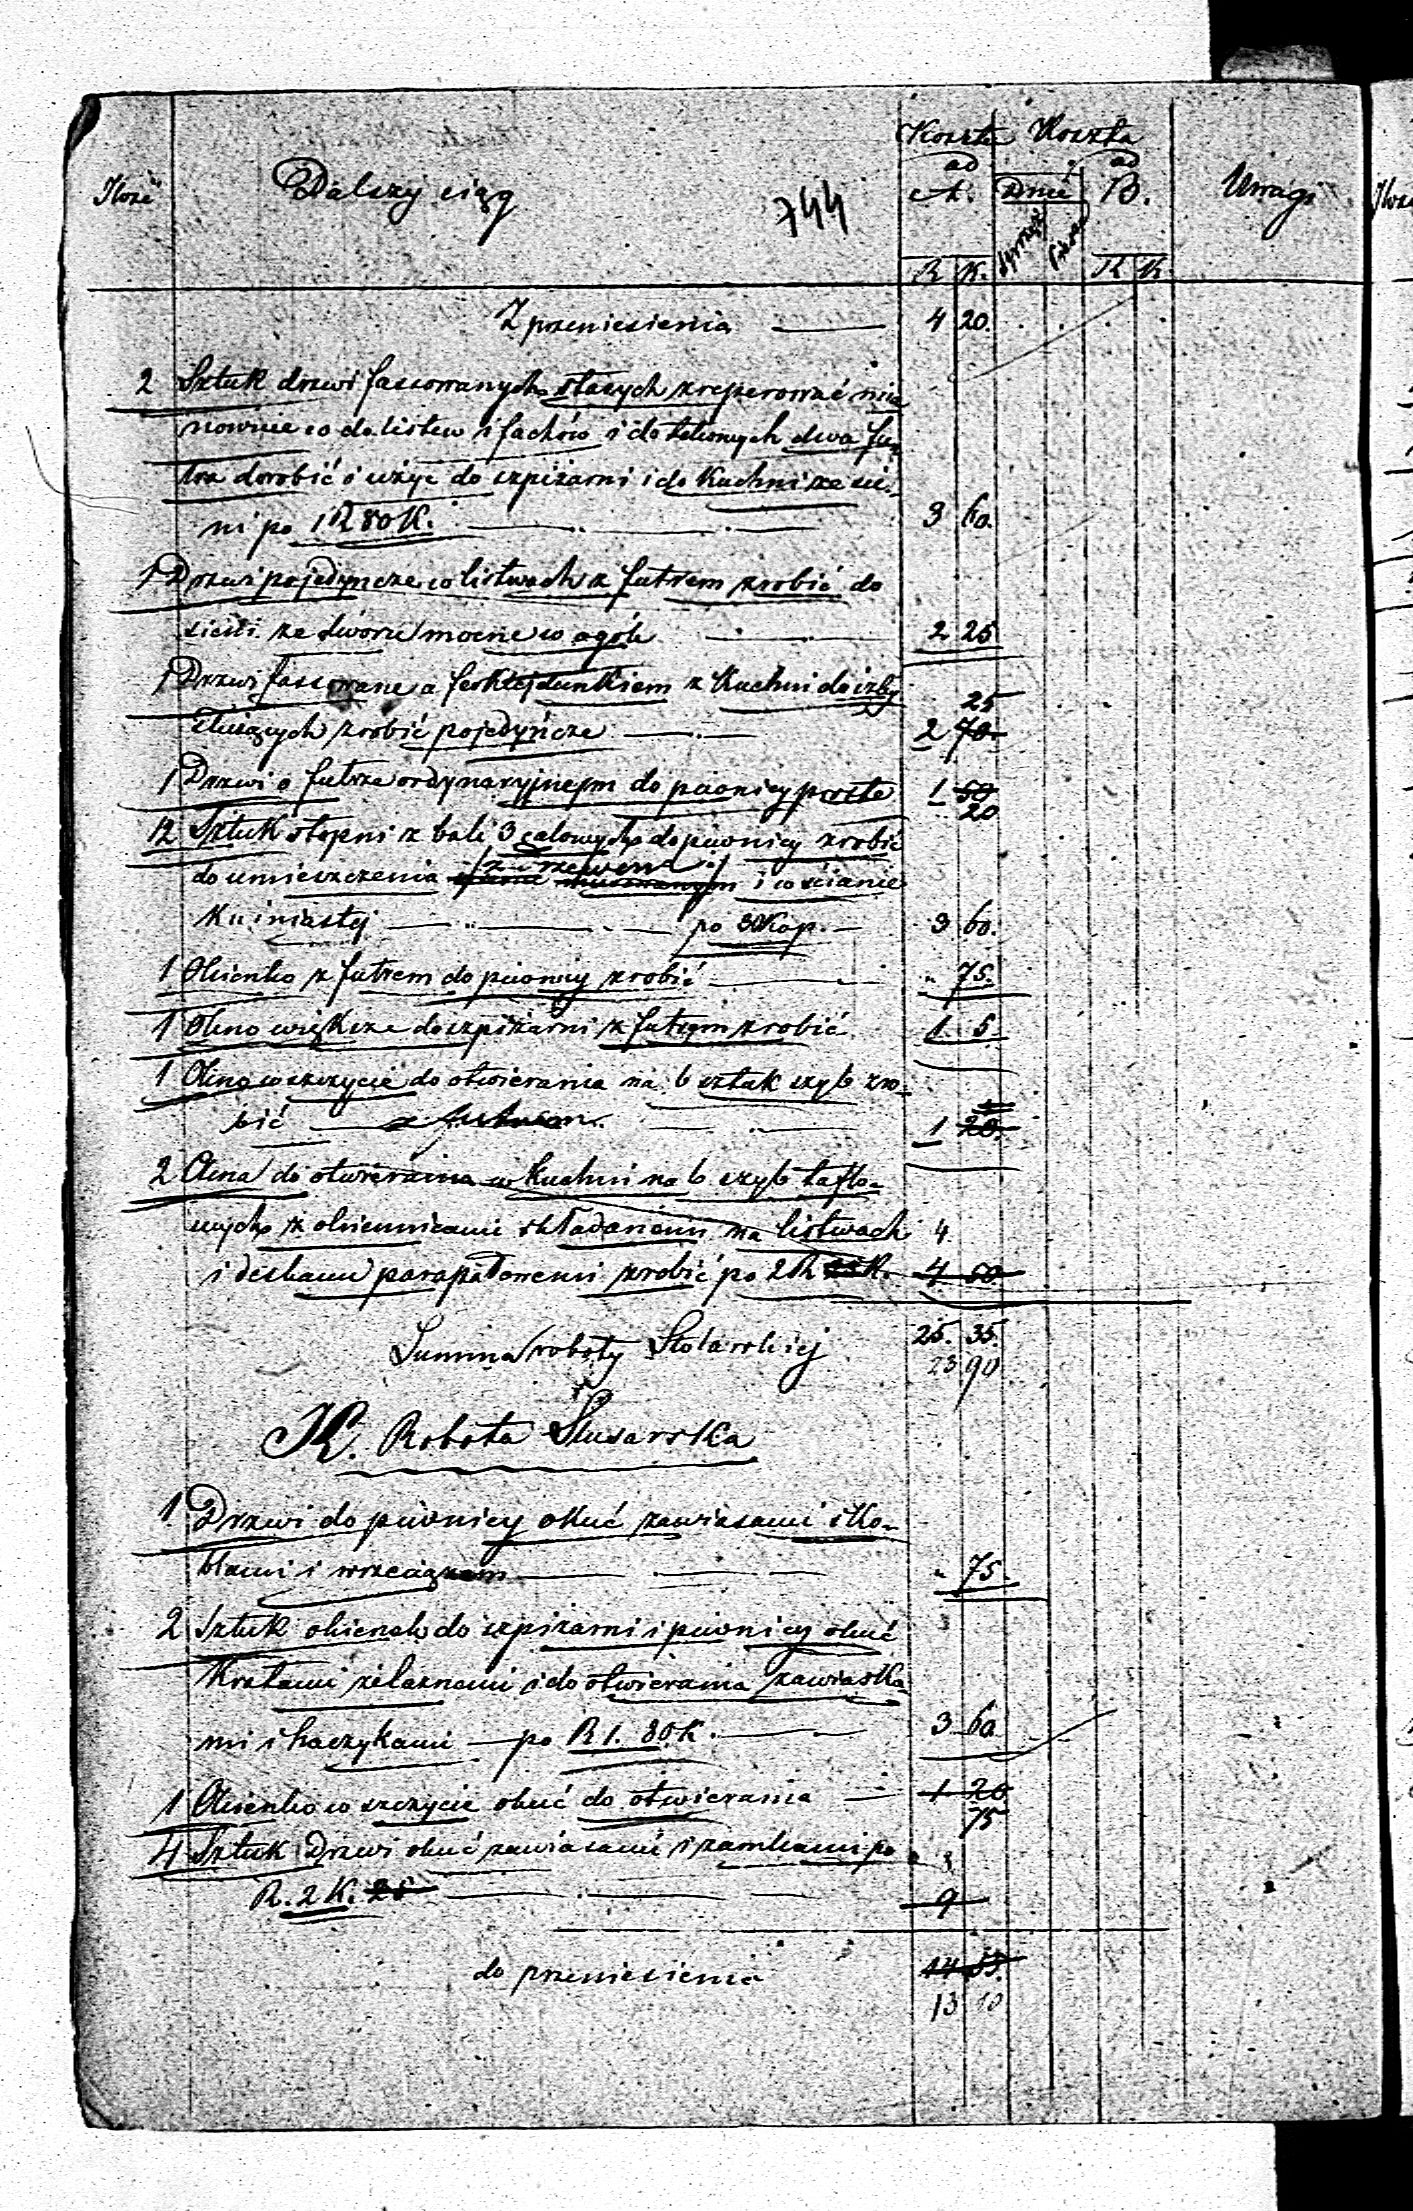 Koszta Koszta
ad ad
Ilość Dalszy ciąg 744 A. Dnie B. Uwagi
R K. R K
Z przeniesienia 4 20.
2 Sztuk drzwi fassowanych starych zreperować mia
nowicie co do listew i fachów i do takowych dwa fu-
tra dorobić i użyć do szpiżarni i do Kuchni ze sie-
ni po 1 R 80 K. 3 60.
1 Drzwi pojedyncze w listwach z futrem zrobić do
sieni ze dworu mocne w ogóle 2 25
1 Drzwi fassowane z Kuchni do izby 25
służących zrobić pojedyńcze 2 70.
1 Drzwi o futrze ordynaryjnejm do piwnicy proste 1 50
20
12 Sztuk stopni z bali 3 calowych do piwnicy zrobić
do umieszczenia i w ścianie
po 30 Kop. 3 60.
1 Okienko z futrem do piwnicy zrobić " 75.
1 Okno większe do szpiżarni z futrem zrobić 1. 5
1 Okno w szczycie do otwierania na 6 sztuk szyb zro-
bić z futrem. 1 20.
2 Okna do otwierania w Kuchni na 6 szyb taflo-
wych z okiennicami składanemi na listwach 4
i deskami parapetowemi zrobić po 2 R 25 K. 4 50
Summa roboty Stolarskiej 25. 35.
23 90
K. Robota Ślusarska
1. Drzwi do piwnicy okuć zawiasami i Ko-
blami i wrzeciązem " 75.
2 Sztuk okienek do szpiżarni i piwnicy okuć
Kratami żelaznemi i do otwierania zawiaska-
mi i haczykami po R 1. 80. K. 3 60
1 Okienko w szczycie okuć do otwierania 1 20
75
4 Sztuk Drzwi okuć zawiasami i zamkami po 8
R. 2 K. 25 9
do przeniesienia 14 55.
13 10